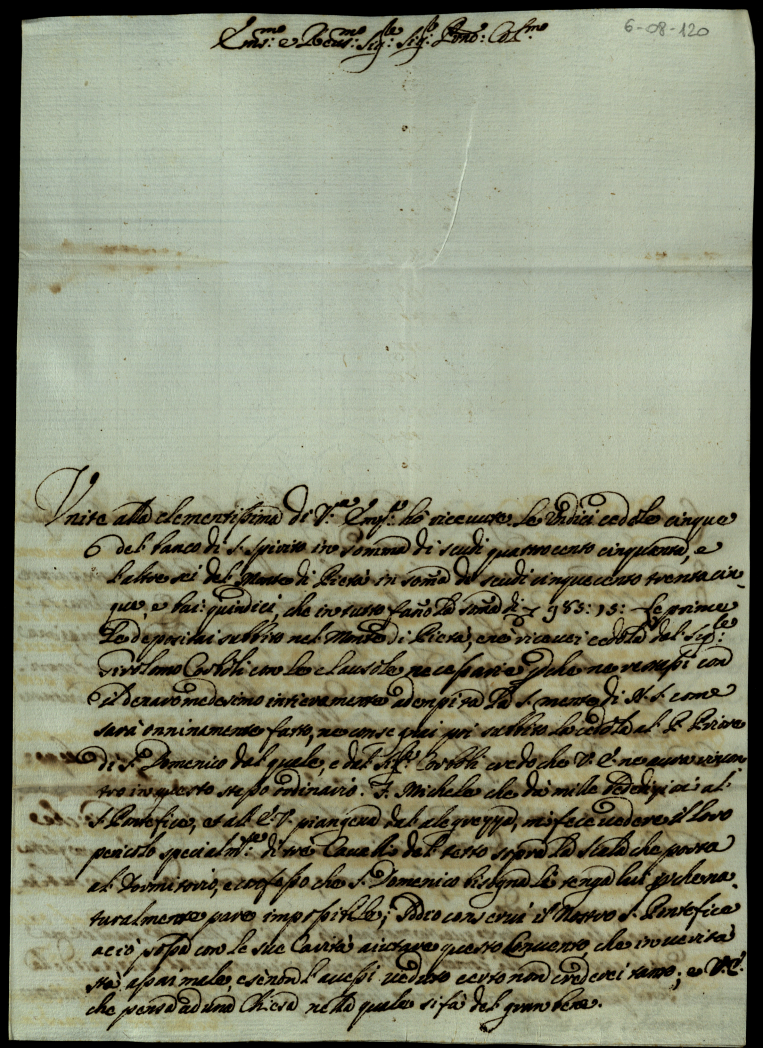 6-08-120
Em.mo e Rev.mo Sig.re Sig.re P.rone Col.mo
Unite alla clementissima di V.ra Em.za hò ricevute le Undici cedole cinque
del banco di S. Spirito in somma di scudi quattrocento cinquanta, e
l'altre sei del Monte di Pietà in soma di scudi cinquecento trentacin-
que, e bai: quindici, che in tutto fano la soma di 985: 15: Le prime
le depositai subbito nel Monte di Pietà, e ne ricavei cedola dal Sig.re
Girolamo Costoli con le clausole necessarie, che ne venissi con
il denaro medesimo intieramente adempita la S. mente di N. S. come
sarà onninamente fatto, ne consegnai poi subbito la cedola al P. Priore
di S. Domenico dal quale, e dal Sig.re Costoli credo che V. E. ne avra riscon-
tro in questo stesso ordinario. F. Michele che dà mille benedizioni al
S. Pontefice, et all' E. V. piangeva dal alegrezza, mi fece vedere il loro
pericolo specialm.te di tre Cavalli del tetto sopra la Scala che porta
al Dormitorio, e confesso che S. Domenico bisogna la tenga lui perche na-
turalmente pare impossibile; Iddio conservi il Nostro S. Pontefice
acciò possa con le sue Carità aiutare questo Convento, che in verità
stà assai male, e se non l'avessi veduto certo non crederei tanto; e V. E.
che pensa ad una Chiesa nella quale si fà del gran bene.